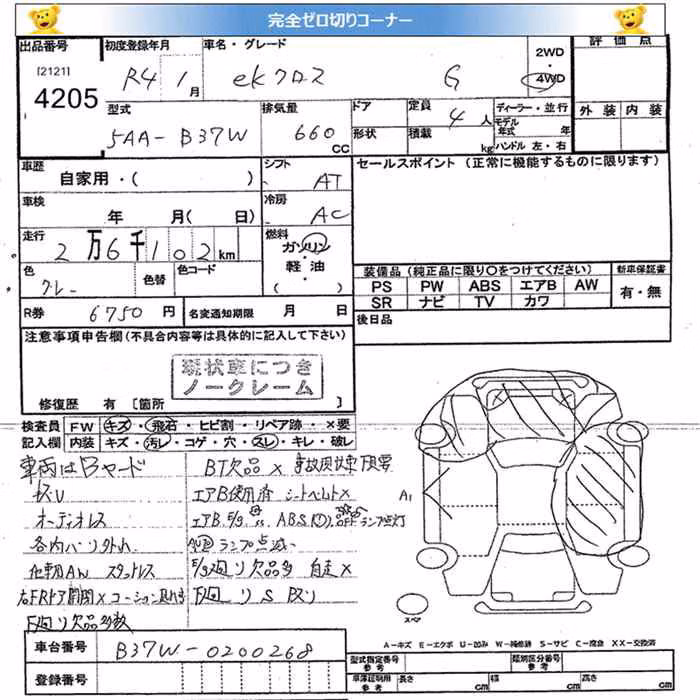 完全ゼロ切りコーナー
出品番号 初度登録年月 車名・グレード 2WD 評価点
[2121] R4 1月 eKクロス G 4WD
4205 型式 排気量 ドア 定員 4人 ディーラー・並行 外装 内装
5AA-B37W 660 CC 形状 積載 kg モデル年式 年
ハンドル 左・右
車歴 シフト セールスポイント (正常に機能するものに限ります)
自家用・( ) AT
車検 冷房
年 月( 日) AC
走行 燃料
2万6千102km ガソリン
色 色替 色コード 軽・油 装備品 (純正品に限り○をつけてください) 新車保証書
グレー ( ) PS PW ABS エアB AW 有・無
R券 6750円 名変通知期限 月 日 SR ナビ TV カワ
注意事項申告欄 (不具合内容等は具体的に記入して下さい) 後日品
現状車につき
ノークレーム
修復歴 有 [箇所
検査員 FW キズ・飛石・ヒビ割・リペア跡・×要
記入欄 内装 キズ・汚レ・コゲ・穴・スレ・キレ・破レ
車両はBヤード BT欠品× 事故現状車
エアB使用済 シートベルト× A1
オーディオレス エアB, E/g, ABS, ランプ点灯
各内ハリ外れ ランプ点滅
他車用AW スタッドレス E/g廻り欠品多 自走×
右FRドア開閉× コーション 下廻りS
下廻り欠品多数
スペア
A-キズ E-エクボ U-凹み W-補修跡 S-サビ C-腐食 XX-交換済
車台番号 B37W-0200268 型式指定番号 参考 類別区分番号 参考
登録番号 車庫証明用 参考 長さ cm 幅 cm 高さ cm